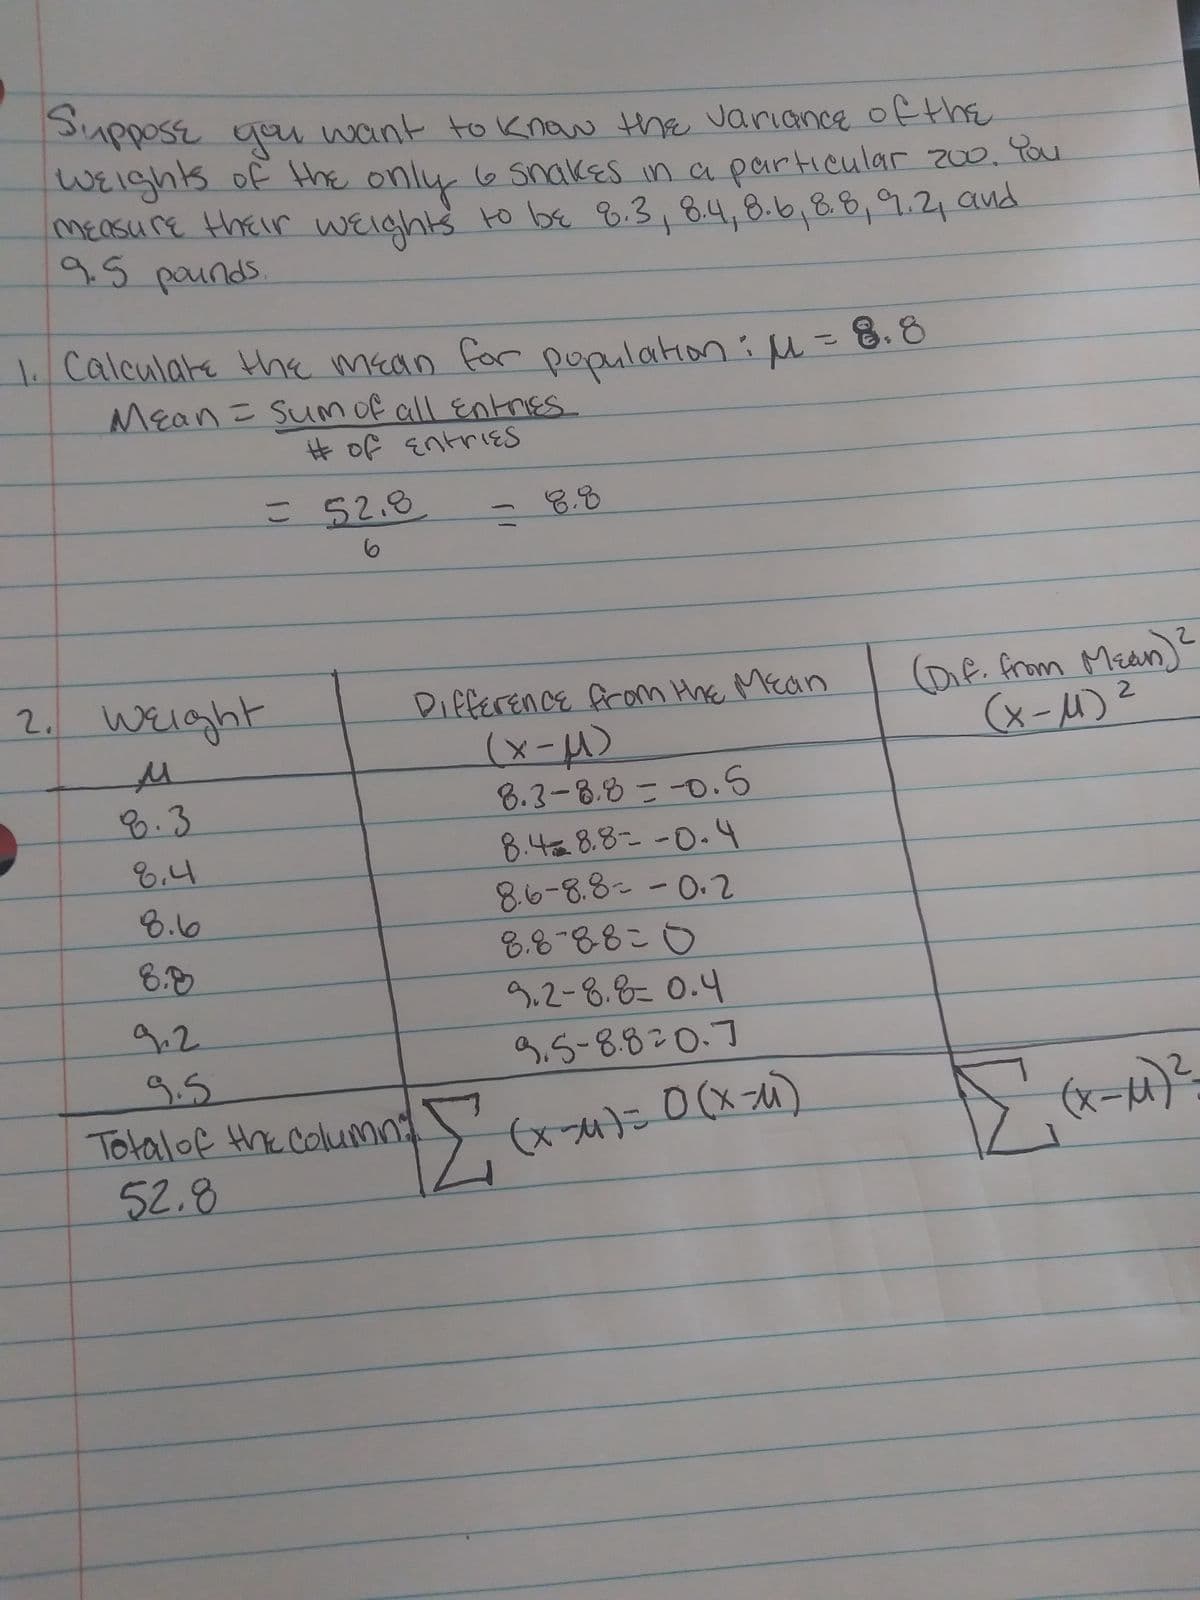 Suppose you want to know the variance of the
weights of the only 6 snakes in a particular zoo. You
measure their weights to be 8.3, 8.4, 8.6, 8.8, 9.2, and
9.5 pounds.
1. Calculate the mean for population: μ = 8.8
Mean = sum of all entries
# of entries
= 52.8 = 8.8
6
2. Weight Difference from the Mean (Dif. from Mean)²
μ (x-μ) (x-μ)²
8.3 8.3-8.8 = -0.5
8.4 8.4-8.8= -0.4
8.6 8.6-8.8= -0.2
8.8 8.8-8.8=0
9.2 9.2-8.8= 0.4
9.5 9.5-8.8=0.7
Total of the column: ∑ (x-μ)= 0(x-μ) ∑ (x-μ)²=
52.8